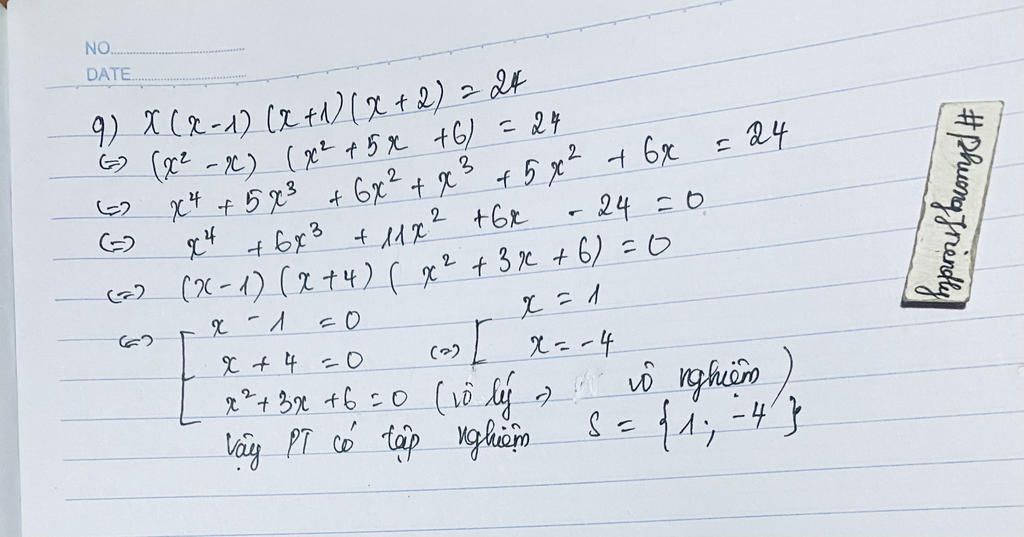 NO
DATE
9) x(x-1)(x+1)(x+2) = 24
<=> (x² - x) (x² + 5x + 6) = 24
<=> x⁴ + 5x³ + 6x² + x³ + 5x² + 6x = 24
<=> x⁴ + 6x³ + 11x² + 6x - 24 = 0
<=> (x-1)(x+4)(x² + 3x + 6) = 0
<=> [ x - 1 = 0
x + 4 = 0 <=> [ x = 1
x = -4
x² + 3x + 6 = 0 (vô lý → vô nghiệm)
Vậy PT có tập nghiệm S = {1; -4}
#phuongfriendly